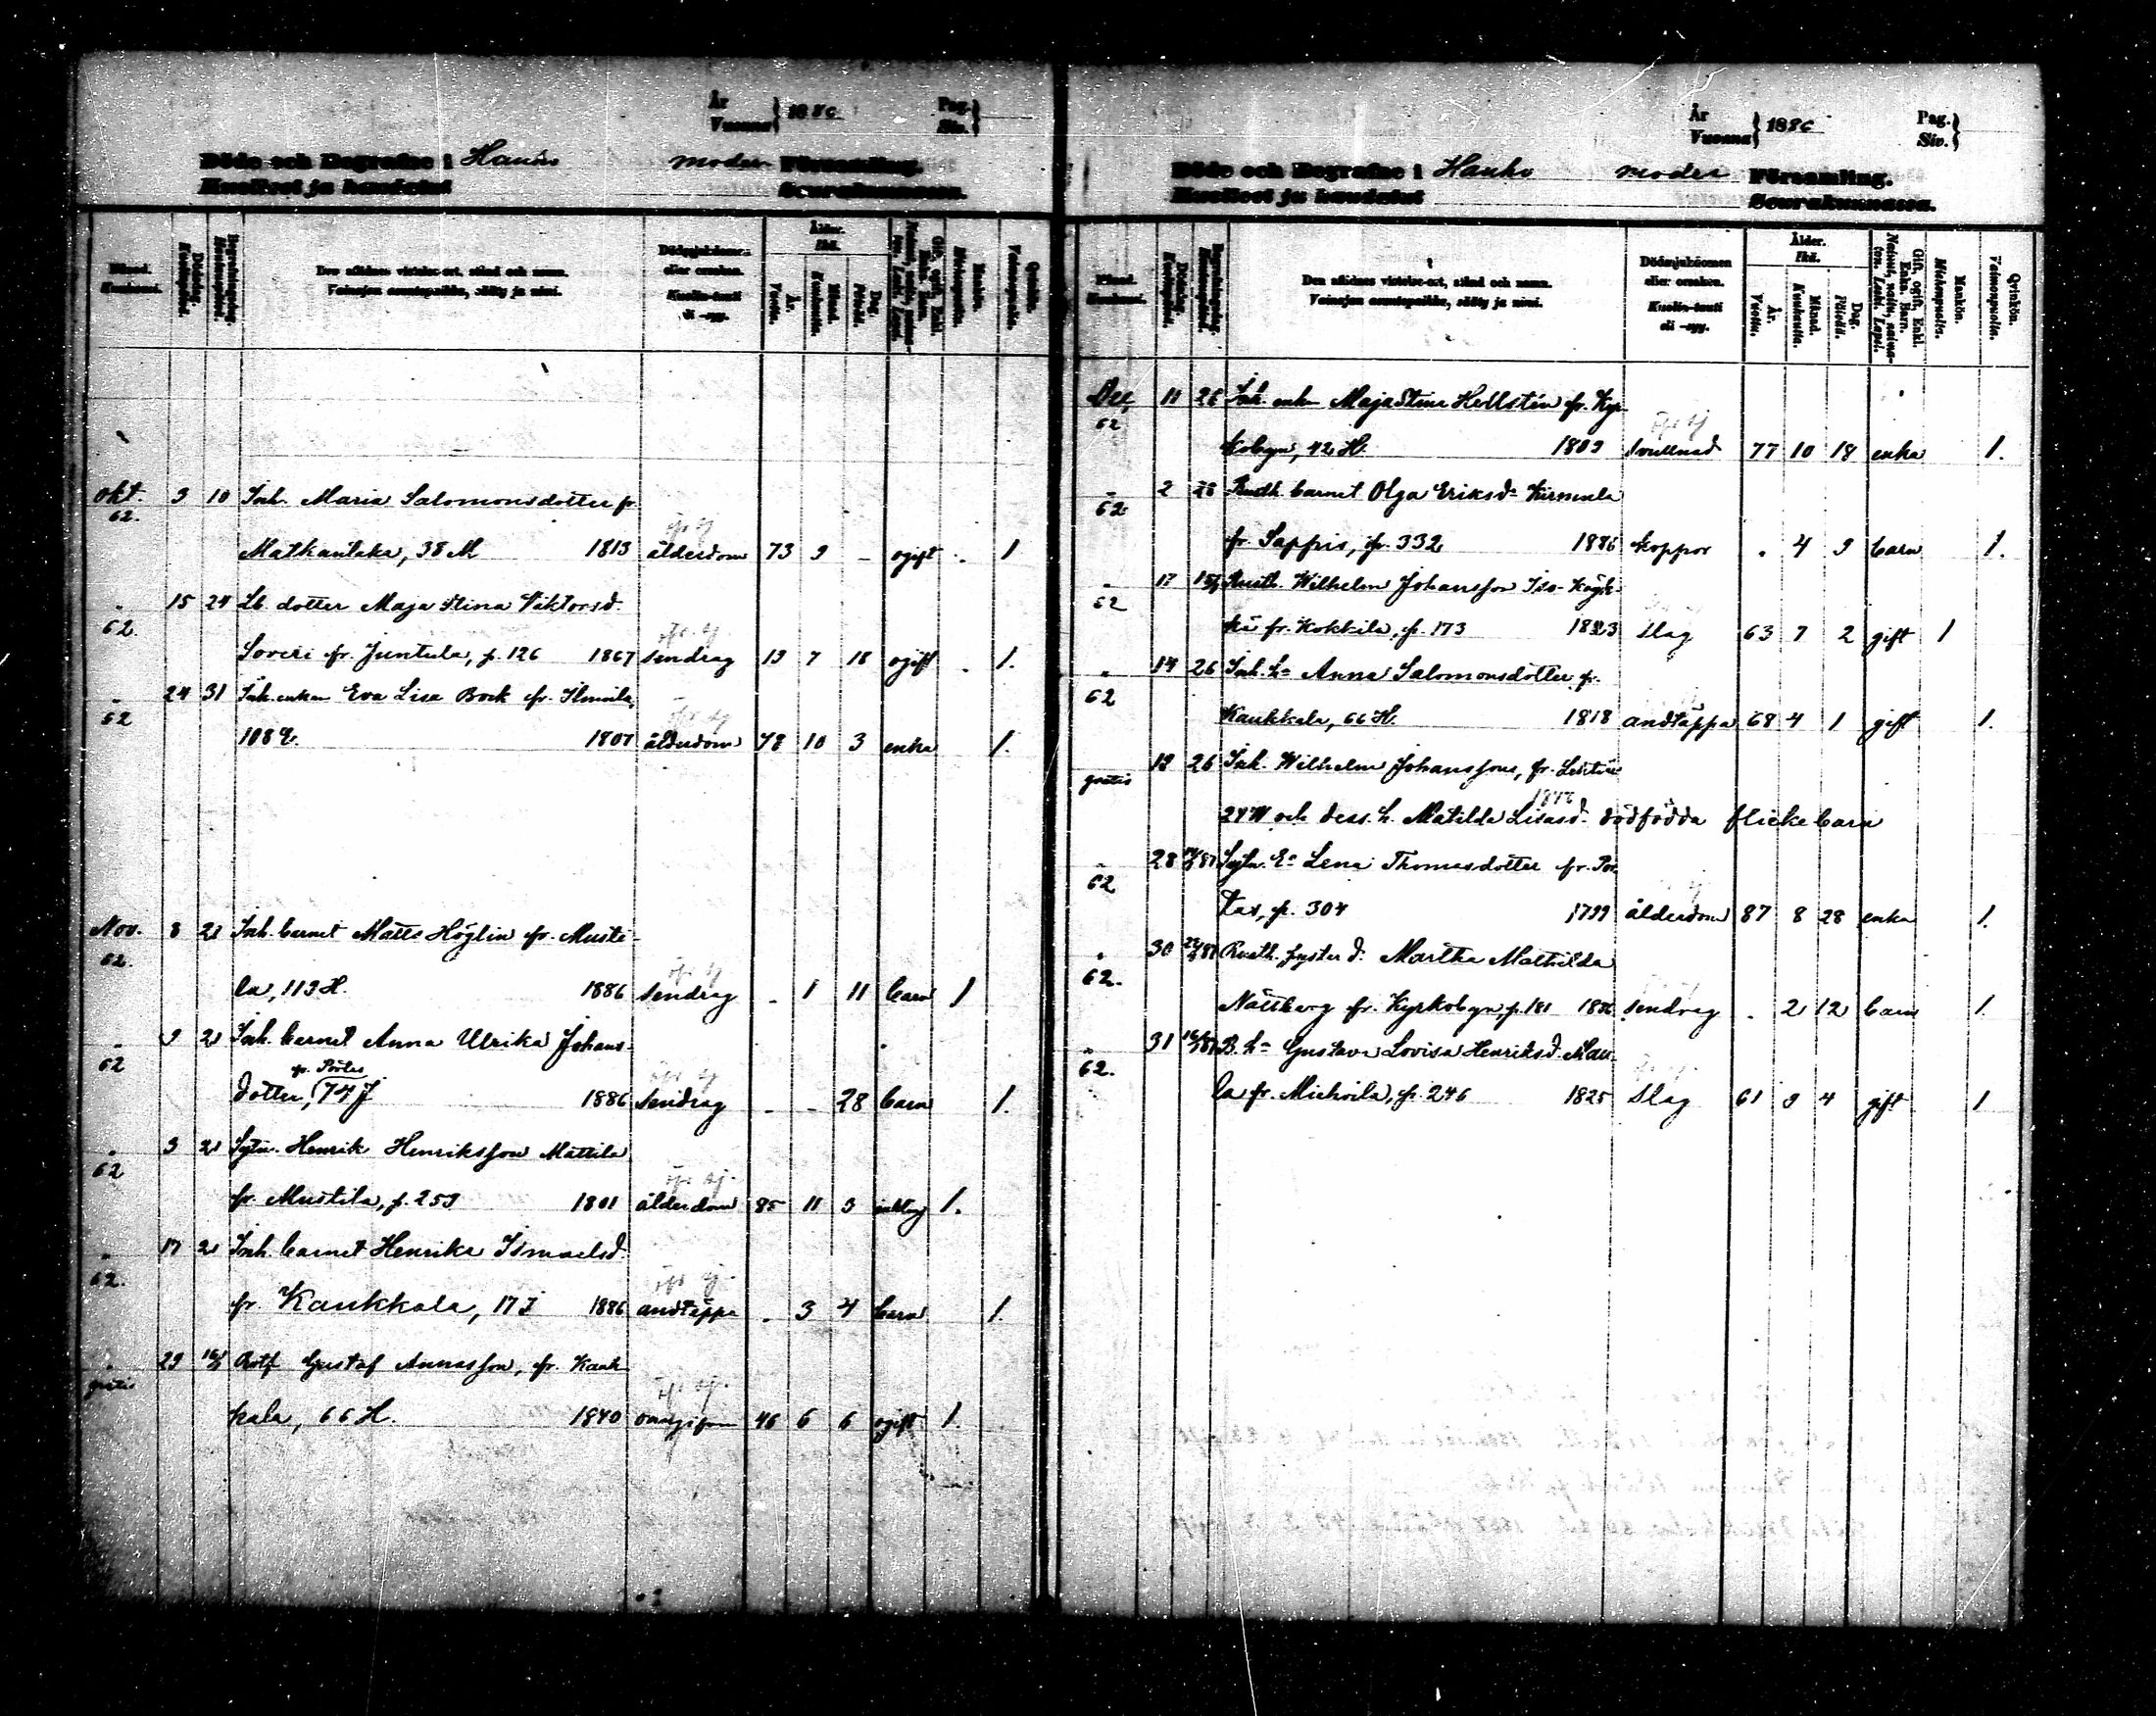 År
Vuonna } 1886
Pag.
Siv. }
Döde och Begrafne i Hauho moder Församling.
Kuolleet ja haudatut Seurakunnassa.
Månad. Kuukausi.
Dödsdag. Kuolinpäivä.
Begrafningsdag. Hautauspäivä.
Den aflidnes vistelse-ort, stånd och namn.
Vainajan asuntopaikka, sääty ja nimi.
Dödssjukdomen eller orsaken.
Kuolin-tauti eli -syy.
Ålder. Ikä.
År. Vuotta.
Månad. Kuukautta.
Dag. Päivää.
Gift, ogift, Enkl. Enka. Barn.
Mankön. Miehenpuolta.
Qvinkön. Vaimonpuolta.
Okt. 9 10 Inh. Maria Salomonsdotter fr.
62.
Matkantaka, 38 M 1813 ålderdom 73 9 – ogift 1
" 15 24 Lb. dotter Maja Stina Viktorsd.
62.
Soveri fr. Juntula, p. 126 1867 sendrag 19 7 18 ogift 1.
" 24 31 Inh. enkan Eva Lisa Bock fr. Ilmoila,
62
108 1807 ålderdom 78 10 3 enka 1.
Nov. 8 21 Inh. barnet Matts Höglin fr. Musti-
62.
la, 113 H. 1886 sendrag - 1 11 barn 1
" 9 21 Inh. barnet Anna Ulrika Johans-
62
fr. Pöles
dotter, 74 J 1886 sendrag - - 28 barn 1.
" 9 21 Sytn. Henrik Henriksson Mattila
62
fr. Mustila, p. 259 1801 ålderdom 85 11 3 enkling 1.
" 17 21 Inh. barnet Henrika Ismaelsd.
62.
fr. Kaukkala, 17 J 1886 andtäppa . 3 4 barn 1.
" 29 Rotf Gustaf Annasson, fr. Kauk-
gratis
kala, 66 H. 1840 46 6 6 ogift 1.
År
Vuonna } 1886
Pag.
Siv. }
Döde och Begrafne i Hauho moder Församling.
Kuolleet ja haudatut Seurakunnassa.
Månad. Kuukausi.
Dödsdag. Kuolinpäivä.
Begrafningsdag. Hautauspäivä.
Den aflidnes vistelse-ort, stånd och namn.
Vainajan asuntopaikka, sääty ja nimi.
Dödssjukdomen eller orsaken.
Kuolin-tauti eli -syy.
Ålder. Ikä.
År. Vuotta.
Månad. Kuukautta.
Dag. Päivää.
Gift, ogift, Enkl. Enka. Barn.
Mankön. Miehenpuolta.
Qvinkön. Vaimonpuolta.
Dec. 11 26 Inh. enkan Maja Stina Hellstén fr. Kyr-
62
kobyn, 42 H. 1809 svullnad 77 10 18 enka 1.
" 2 26 Rusth. barnet Olga Eriksd:r Kirmula
62
fr. Sappis, p. 332 1886 koppor . 4 9 barn 1.
" 17 Rusth. Wilhelm Johansson Iso-Kägk-
62
kä fr. Kokkila, p. 173 1823 slag 63 7 2 gift 1
" 14 26 Inh. h:u Anna Salomonsdotter fr.
62
Kaukkala, 66 H. 1818 andtäppa 68 4 1 gift 1.
18 26 Inh. Wilhelm Johanssons, fr. Lehtis
gratis
24 W och dess h. Matilda Lisasd. dödfödda flickebarn
" 28 Sytn. E:a Lena Thomasdotter fr. Por-
62
tas, p. 304 1799 ålderdom 87 8 28 enka 1.
" 30 Rusth. syster d. Martha Mathilda
62.
Nättberg fr. Kyrkobyn, p. 181 1886 sendrag . 2 12 barn 1.
" 31 B. h:u Gustava Lovisa Henriksd. Mau-
62.
la fr. Miehoila, p. 246 1825 slag 61 9 4 gift 1